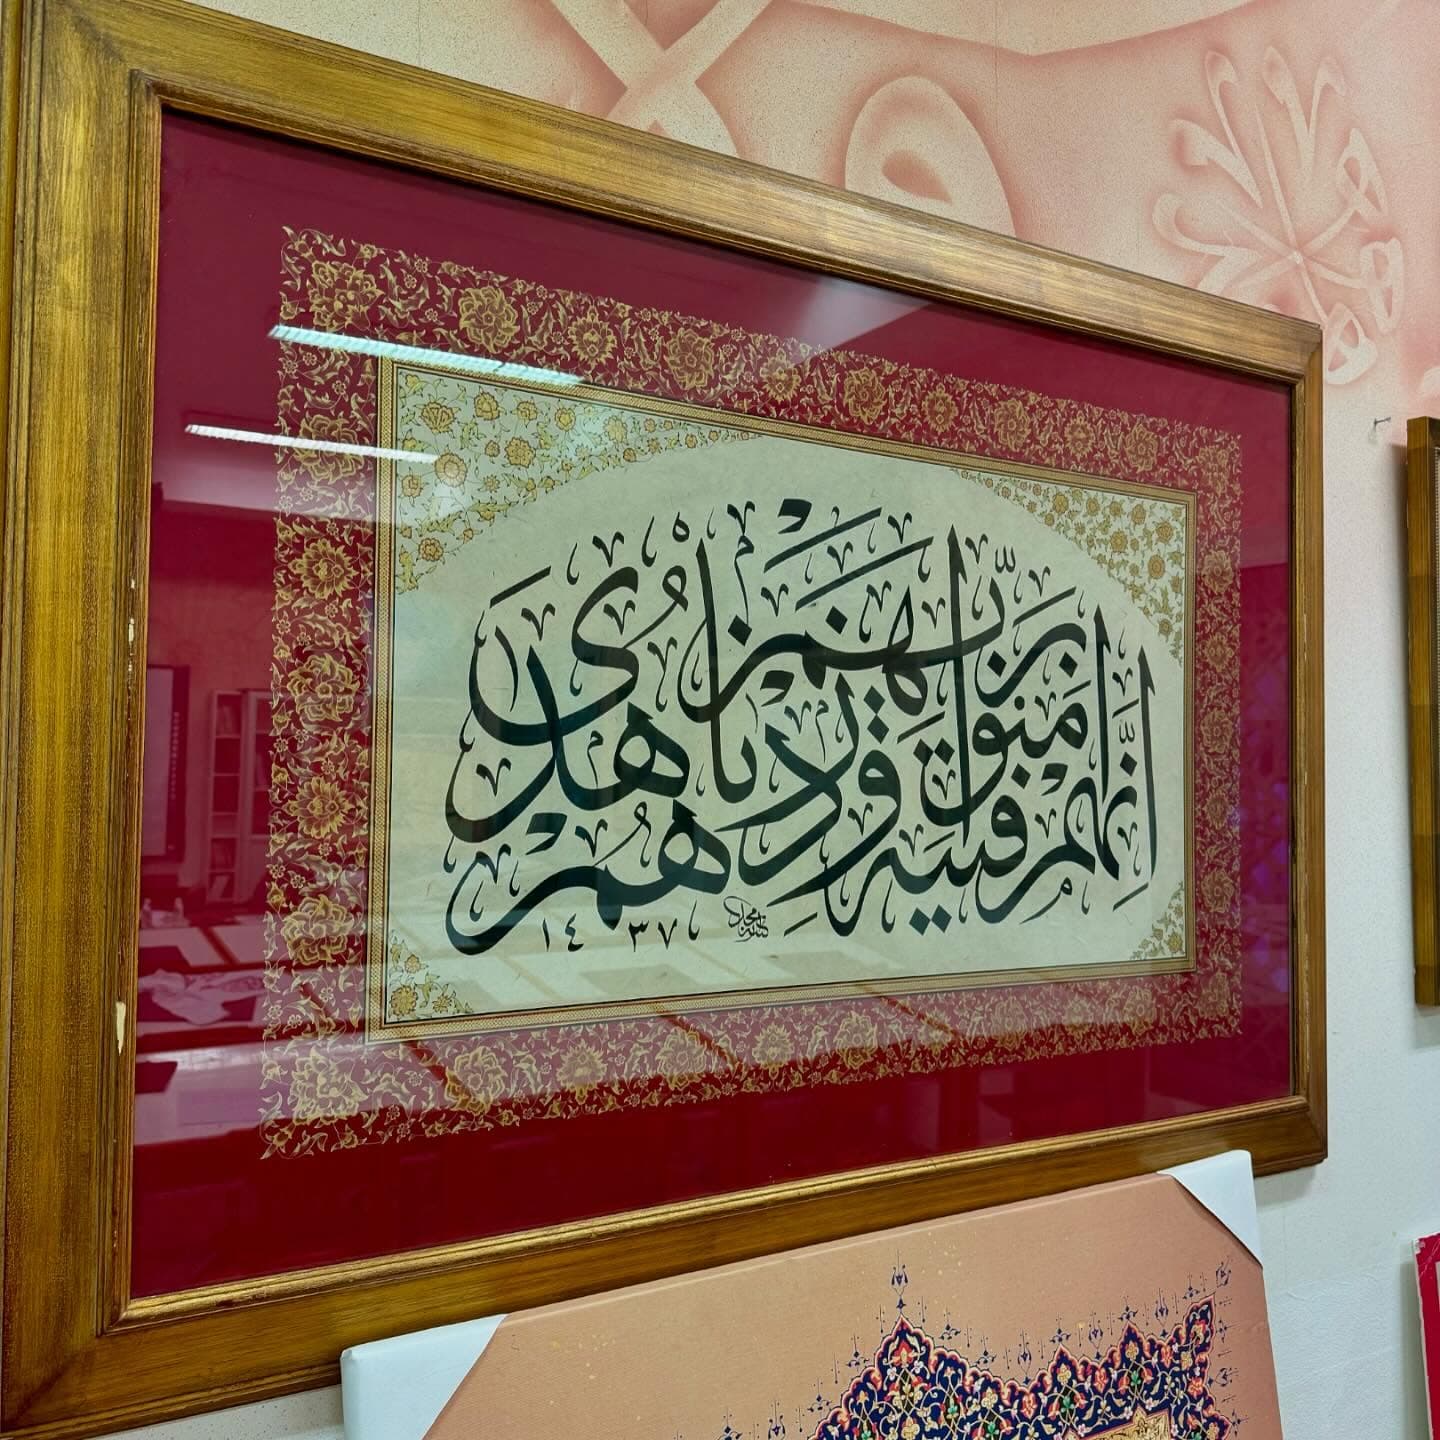 إِنَّهُمْ فِتْيَةٌ آمَنُوا بِرَبِّهِمْ وَزِدْنَاهُمْ هُدًى
١٤٣٧